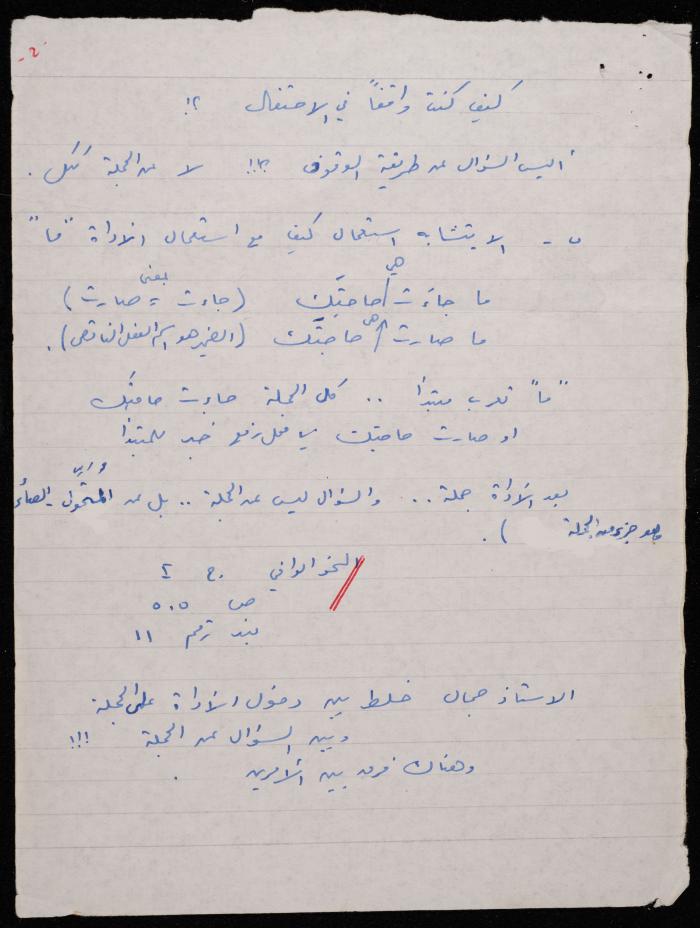 -٢-
كيف كنت واقفاً في الاحتفال ؟!
أليس السؤال عن طريقة الوقوف ؟!!! لا عن الجملة ككل .
ب - الا يتشابه استعمال كيف مع استعمال الأداة "ما"
هي
ما جاءَت / حاجتَك (جاءت = بمعنى صارت)
هي
ما صارت / حاجتَك (الضمير هو اسم الفعل الناقص) .
"ما" تعرب مبتدأ .. كل الجملة جاءت حاجتك
او صارت حاجتك في محل رفع خبر للمبتدأ
بعد الأداة جملة .. والسؤال ليس عن الجملة .. بل عن
وهو جزء من الجملة ) .
النحو الوافي ج ٤
ص ٥٠٥
بند رقم ١١
الاستاذ جمال خلط بين دخول الأداة على الجملة
وبين السؤال عن الجملة !!!
وهناك فرق بين الأمرين .